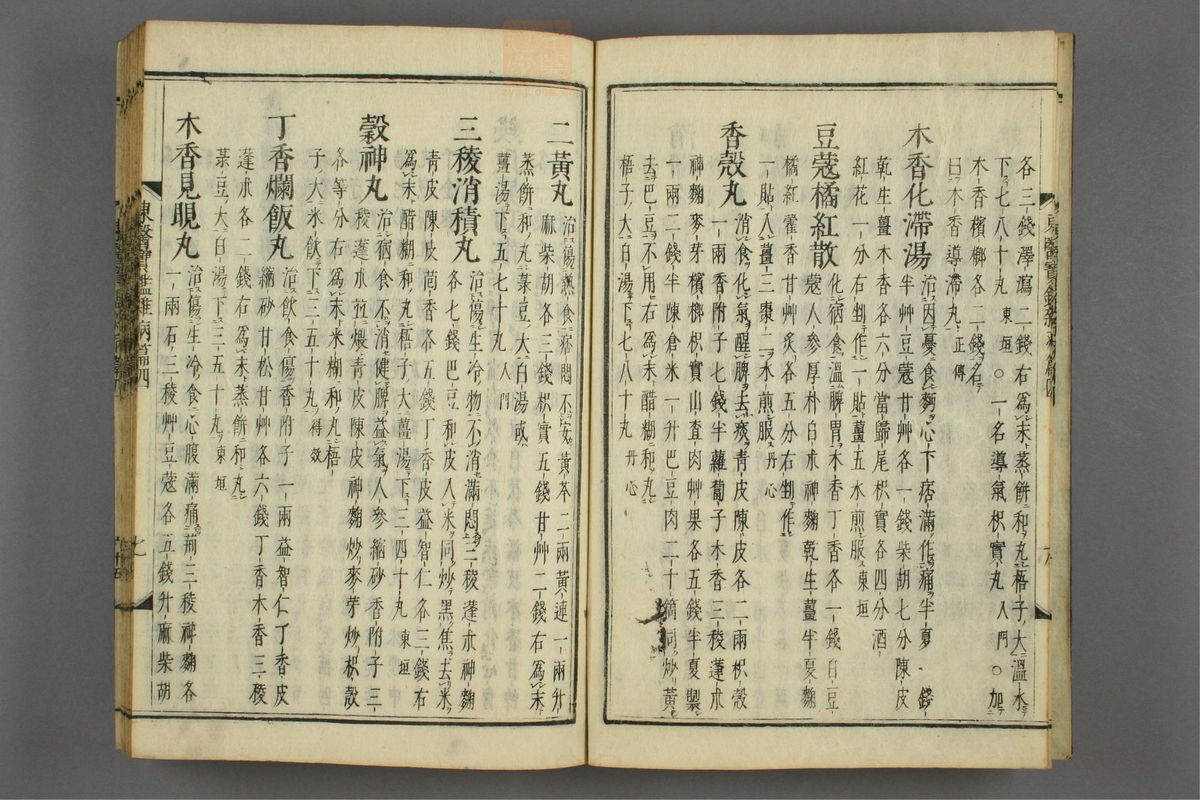 各三錢澤瀉二錢右爲末蒸餅和丸梧子大溫水
下七八十丸東垣○一名導氣枳實丸入門○加
木香檳榔各二錢名
曰木香導滯丸正傳
木香化滯湯 治因憂食麪心下痞滿作痛半夏一錢
半艸豆蔻甘艸各一錢柴胡七分陳皮
乾生薑木香各六分當歸尾枳實各四分酒
紅花一分右剉作一貼薑五水煎服東垣
豆蔻橘紅散 化宿食溫脾胃木香丁香各一錢白豆
蔻人參厚朴白朮神麴乾生薑半夏麴
橘紅藿香甘艸炙各五分右剉作
一貼入薑三棗二水煎服丹心
香殼丸 消食化氣醒脾去痰靑皮陳皮各二兩枳殼
一兩香附子七錢半蘿蔔子木香三稜蓬朮
神麴麥芽檳榔枳實山査肉艸果各五錢半夏製
一兩二錢半陳倉米一升巴豆肉二十箇同炒黃
去巴豆不用右爲末醋糊和丸
梧子大白湯下七八十丸丹心
二黃丸 治傷熱食痞悶不安黃芩二兩黃連一兩升
麻柴胡各三錢枳實五錢甘艸二錢右爲末
蒸餅和丸菉豆大白湯或
薑湯下五七十丸入門
三稜消積丸 治傷生冷物不消滿悶三稜蓬朮神麴
各七錢巴豆和皮入米同炒黑焦去米
靑皮陳皮茴香各五錢丁香皮益智仁各三錢右
爲末醋糊和丸梧子大薑湯下三四十丸東垣
穀神丸 治宿食不消健脾益氣人參縮砂香附子三
稜蓬朮並煨靑皮陳皮神麴炒麥芽炒枳殼
各等分右爲末米糊和丸梧
子大米飮下三五十丸得效
丁香爛飯丸 治飮食傷香附子一兩益智仁丁香皮
縮砂甘松甘艸各六錢丁香木香三稜
蓬朮各二錢右爲末蒸餅和丸
菉豆大白湯下三五十丸東垣
木香見睍丸 治傷生冷食心腹滿痛荊三稜神麴各
一兩石三稜艸豆蔻各五錢升麻柴胡
東醫寶鑑雜病篇四